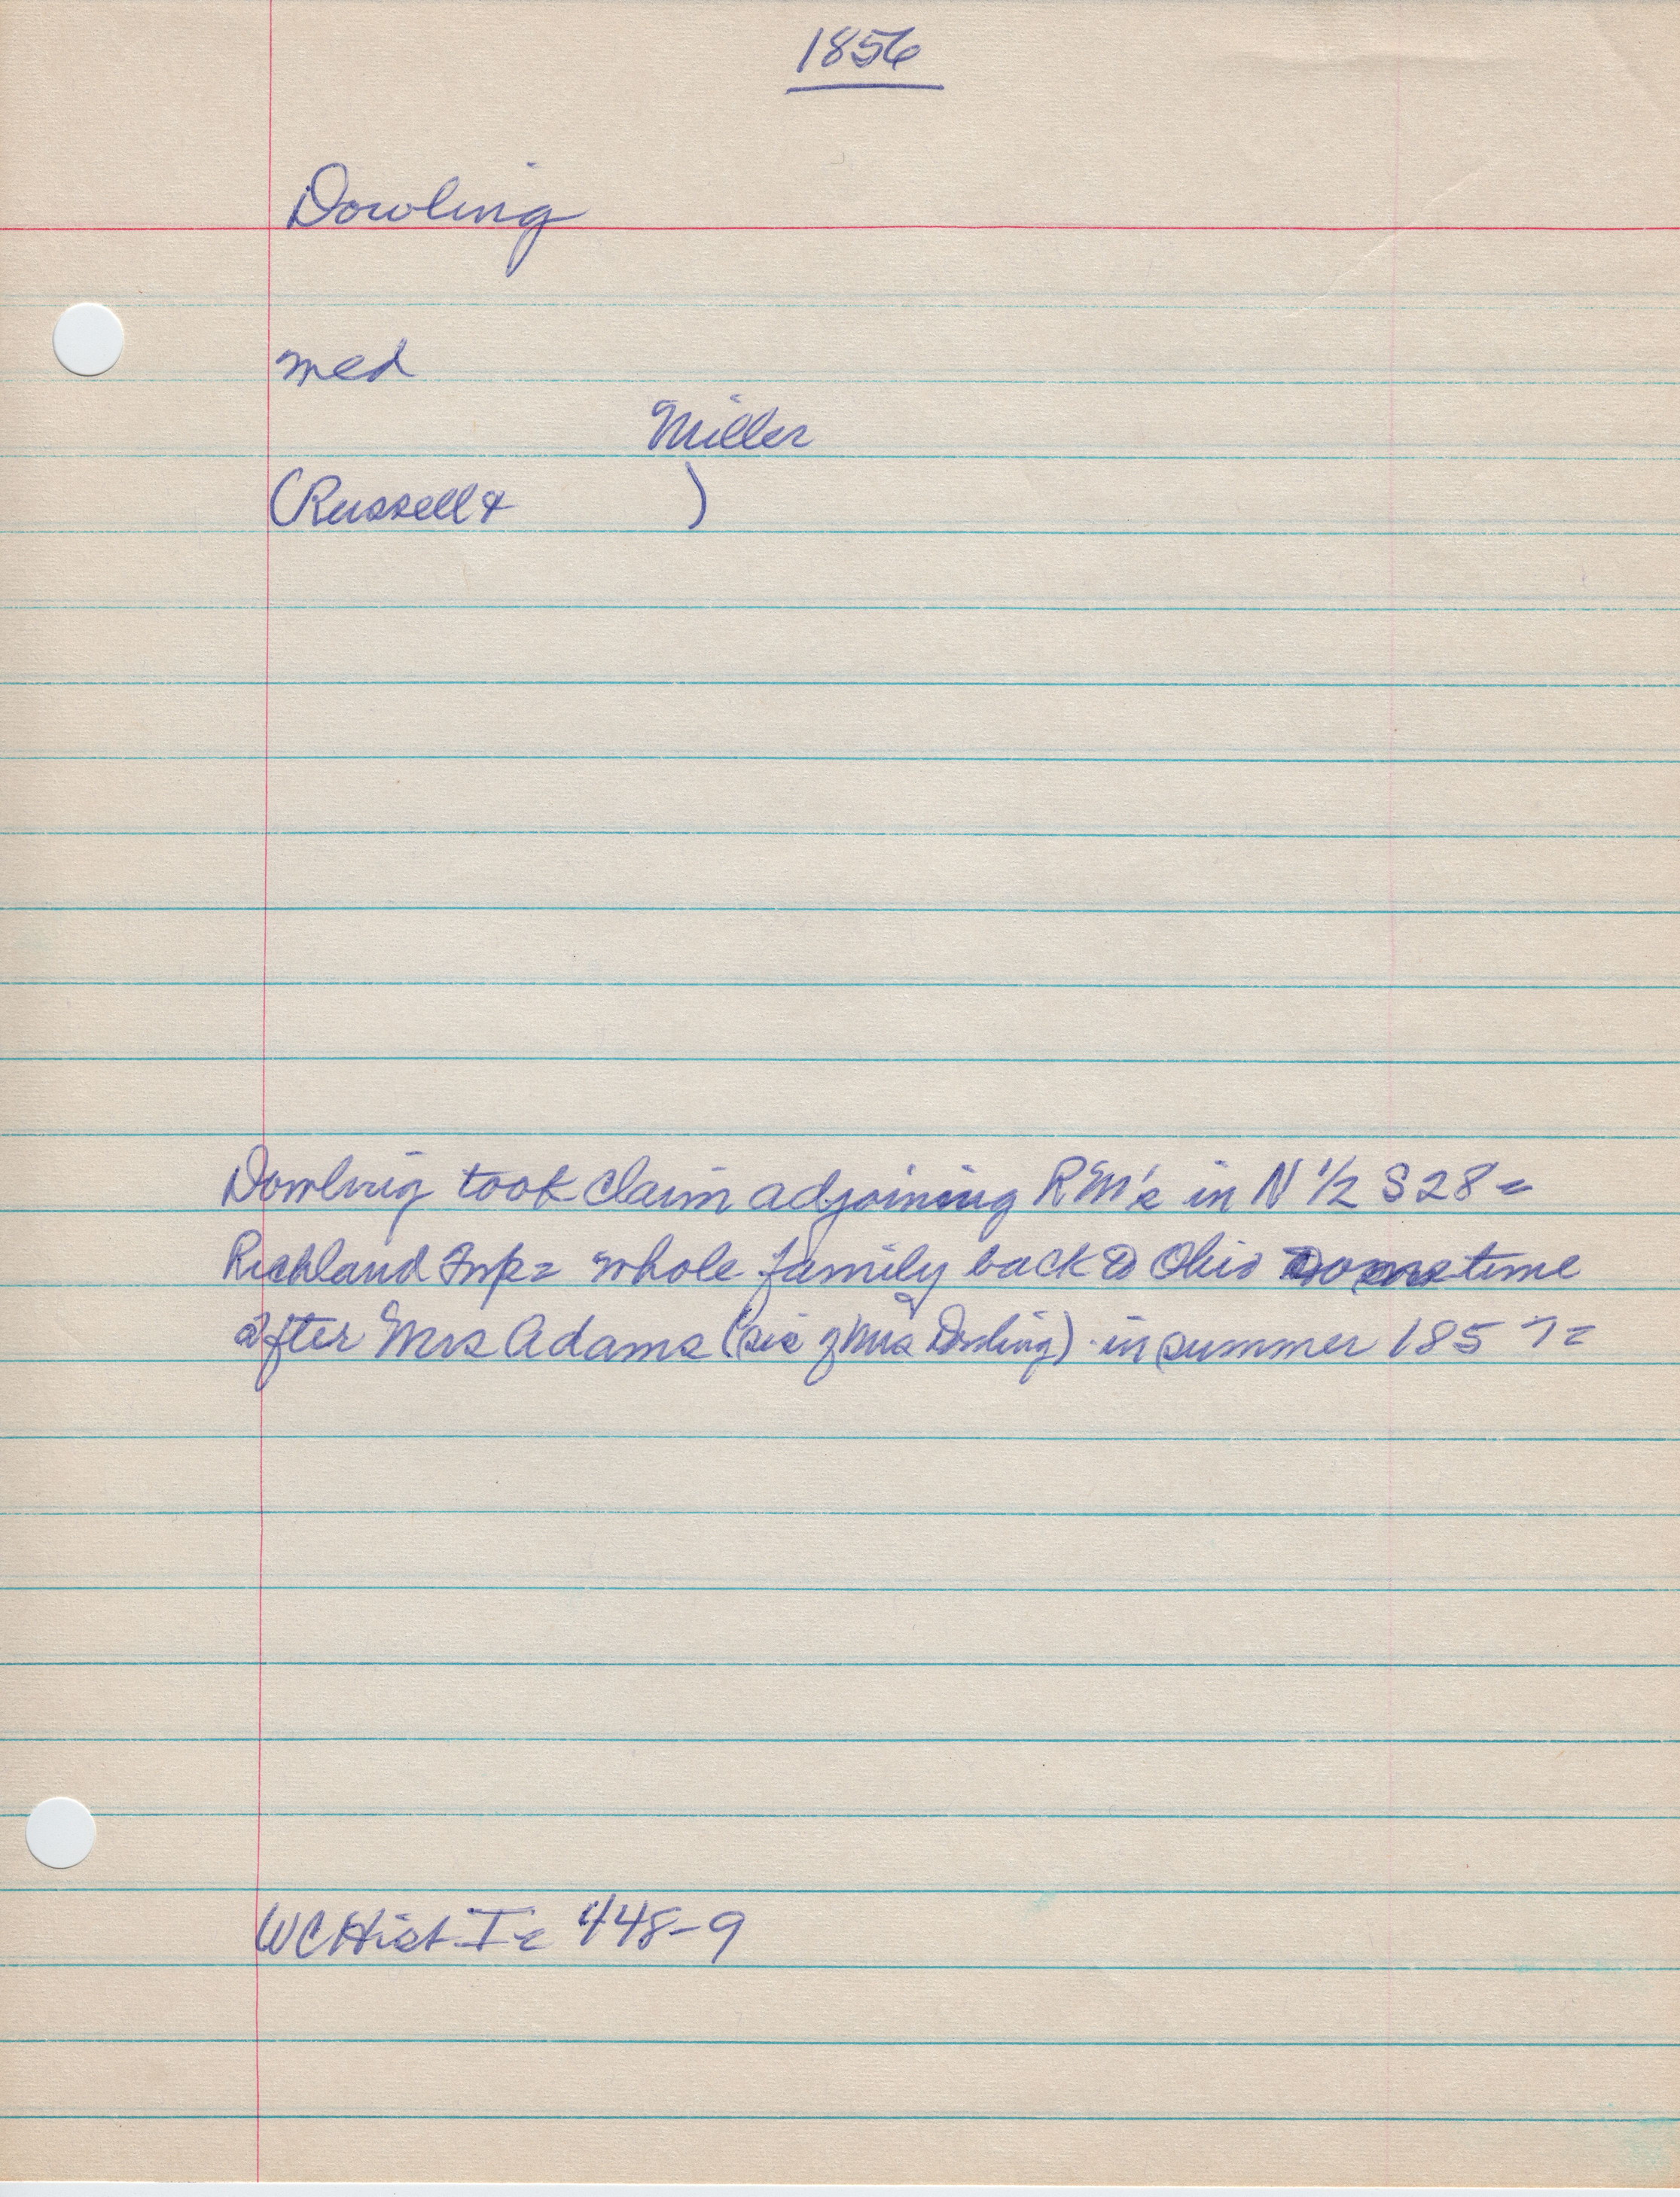 1856
Dowling
med
Miller
(Russell & )
Dowling took claim adjoining RM's in N 1/2 S 28 =
Richland Twp = whole family back to Ohio sometime
after Mrs Adams (sis of Mrs Dowling) in summer 1857 =
WC Hist I = 448-9